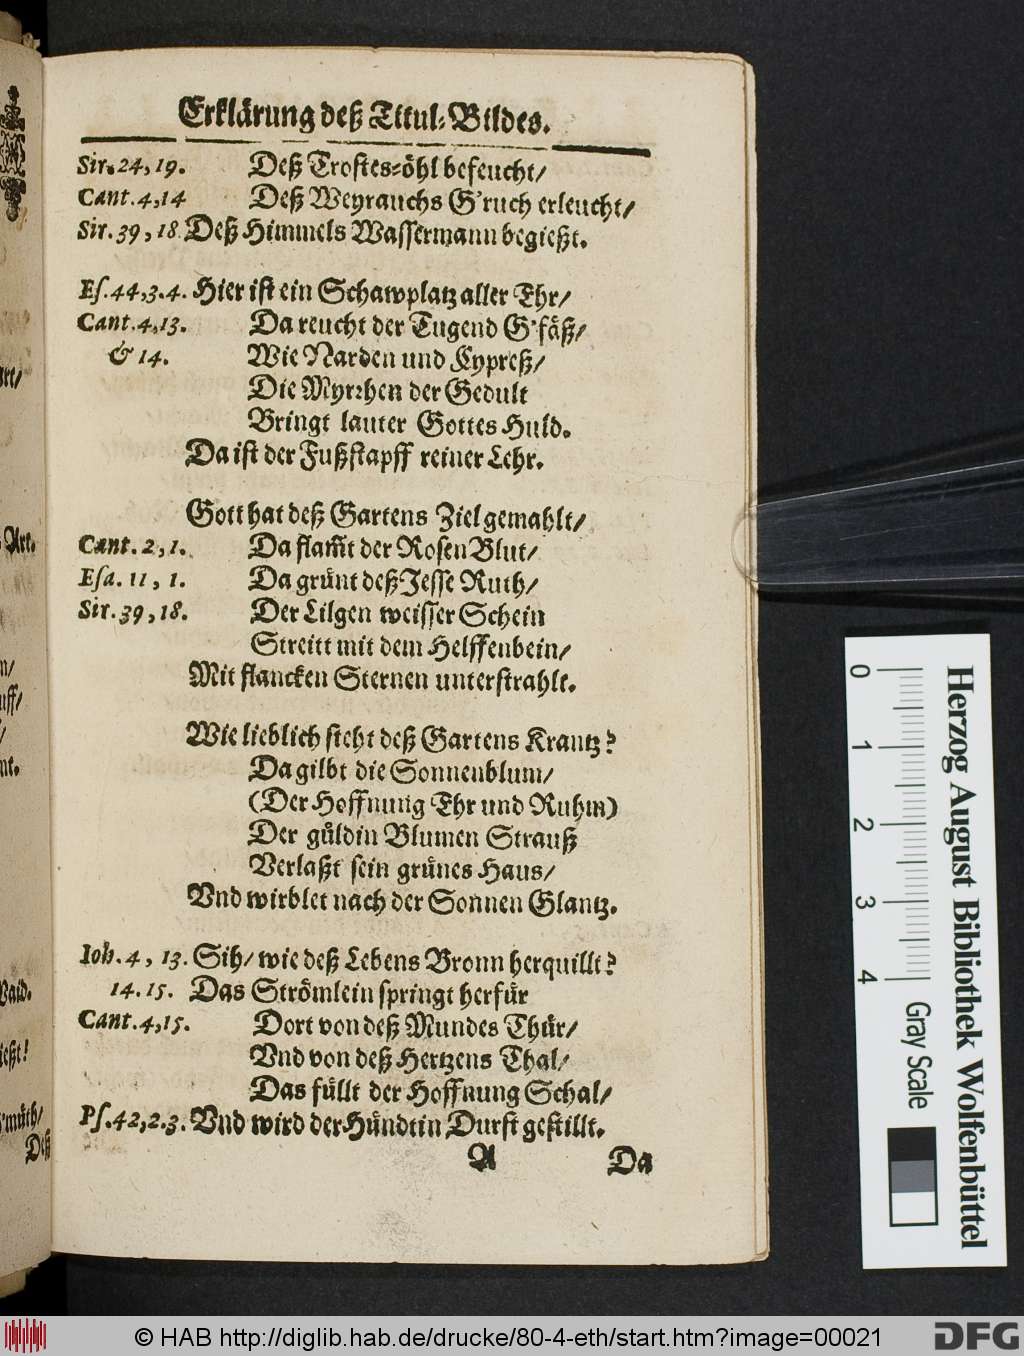 Erklärung deß Titul-Bildes.
Sir. 24, 19. Deß Trostes-öhl befeucht/
Cant. 4, 14 Deß Weyrauchs G'ruch erleucht/
Sir. 39, 18 Deß Himmels Wassermann begießt.
Es. 44, 3. 4. Hier ist ein Schawplatz aller Ehr/
Cant. 4, 13. Da reucht der Tugend G'fäß/
& 14. Wie Narden und Cypreß/
Die Myrrhen der Gedult
Bringt lauter Gottes Huld.
Da ist der Fußstapff reiner Lehr.
Gott hat deß Gartens Ziel gemahlt/
Cant. 2, 1. Da flam̃t der Rosen Blut/
Esa. 11, 1. Da grünt deß Jesse Ruth/
Sir. 39, 18. Der Lilgen weisser Schein
Streitt mit dem Helffenbein/
Mit flancken Sternen unterstrahlt.
Wie lieblich steht deß Gartens Krantz?
Da gilbt die Sonnenblum/
(Der Hoffnung Ehr und Ruhm)
Der güldin Blumen Strauß
Verlaßt sein grünes Haus/
Vnd wirblet nach der Sonnen Glantz.
Ioh. 4, 13. Sih/ wie deß Lebens Bronn herquillt?
14. 15. Das Strömlein springt herfür
Cant. 4, 15. Dort von deß Mundes Thür/
Vnd von deß Hertzens Thal/
Das füllt der Hoffnung Schal/
Ps. 42, 2. 3. Vnd wird der Hündtin Durst gestillt.
A Da
Art.
Wald.
ießt!
G'müth/
Deß
0 1 2 3 4
Herzog August Bibliothek Wolfenbüttel
Gray Scale
© HAB http://diglib.hab.de/drucke/80-4-eth/start.htm?image=00021
DFG